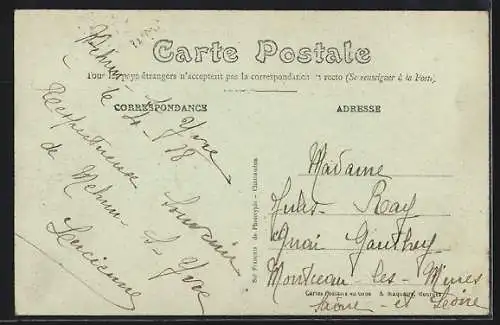 Carte Postale
Tous les pays étrangers n'acceptent pas la correspondance au recto (Se renseigner à la Poste)
CORRESPONDANCE
ADRESSE
Mehun-S-Yèvre
le
Respectueux Souvenir
de Mehun-S-Yèvre
Lucienne
Madame
Jules Ray
Quai Gauthey
Montceau-les-Mines
Saône-et-Loire
Sé Française de Phototypie - Châteaudun